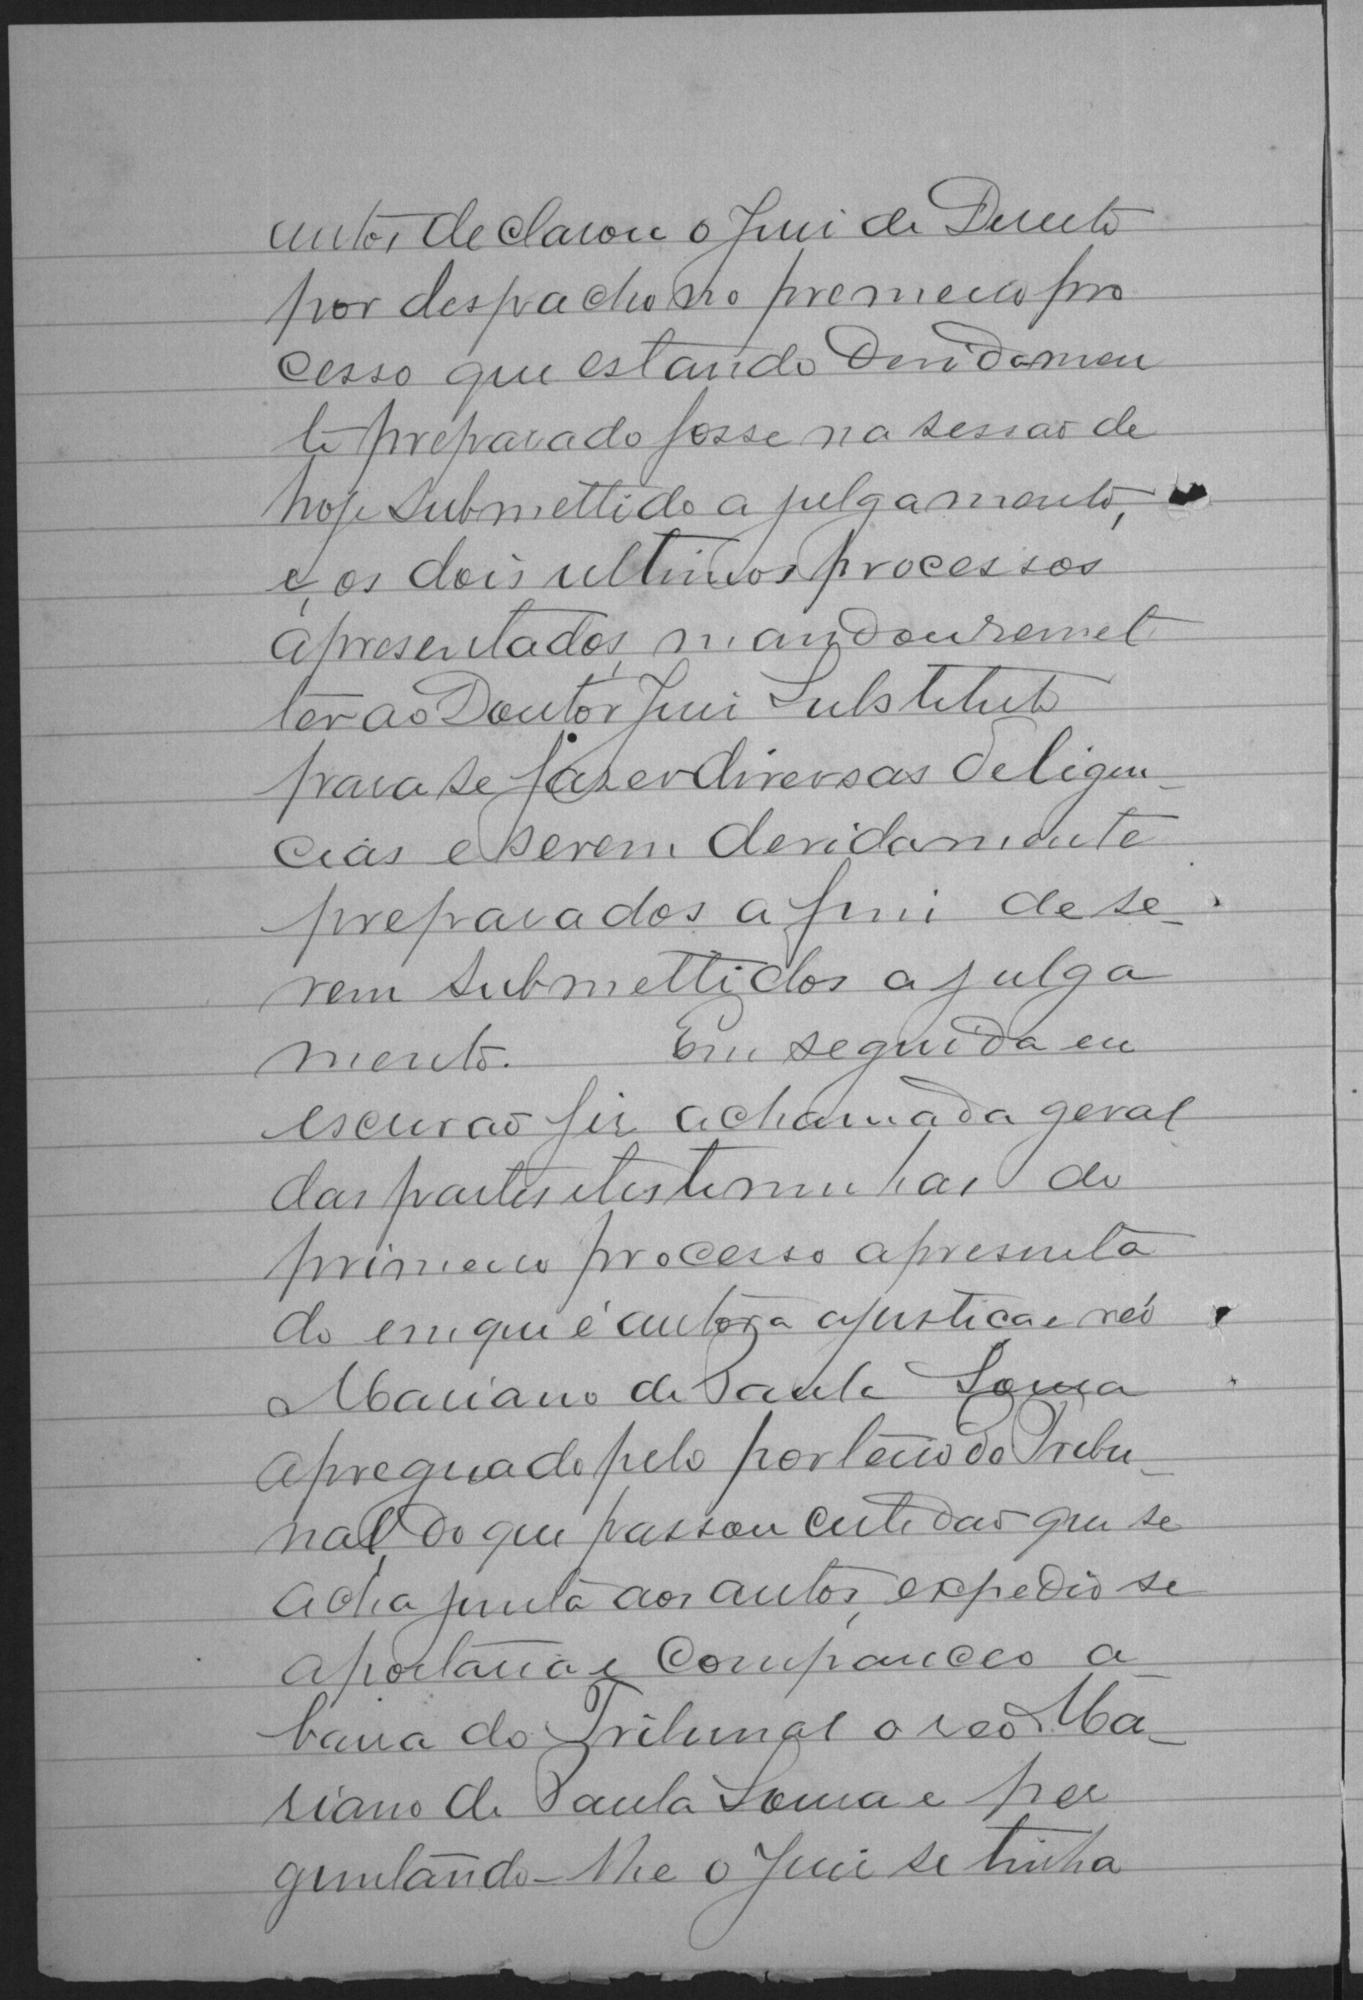 autos, declarou o Juiz de Direito
por despacho no premeiro pro
cesso que estando devidamen
te preparado fosse na sessão de
hoje submettido a julgamento,
e, os dois ultimos processos
apresentados, mandou remet
ter ao Doutor Juiz Substituto
para se fazer diversas deligen-
cias e serem devidamente
preparados a fim de se-
rem submettidos a julga
mento. Em seguida eu
escrivão fiz a chamada geral
das partes e testemunhas do
primeiro processo apresenta
do em que é autora a justiça e réo
Mariano de Paula Souza
apregoado pelo porteiro do Tribu-
nal, do que passou certidão que se
acha junta aos autos, expedio se
a portaria e compareceo a
barra do Tribunal o reo Ma-
riano de Paula Souza e per
guntando-lhe o Juiz se tinha